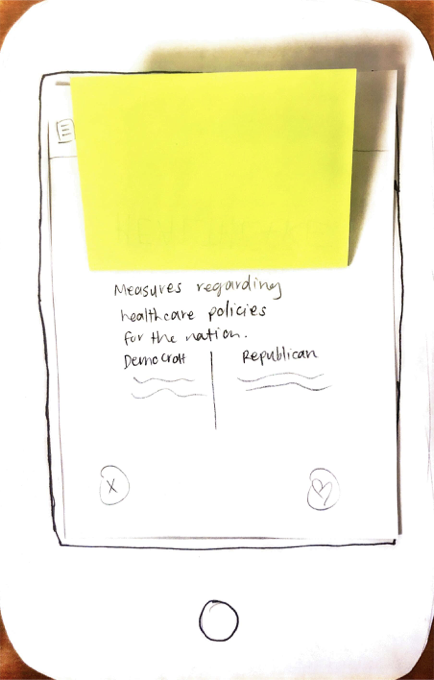 Measures regarding
healthcare policies
for the nation.
Democratt Republican
X